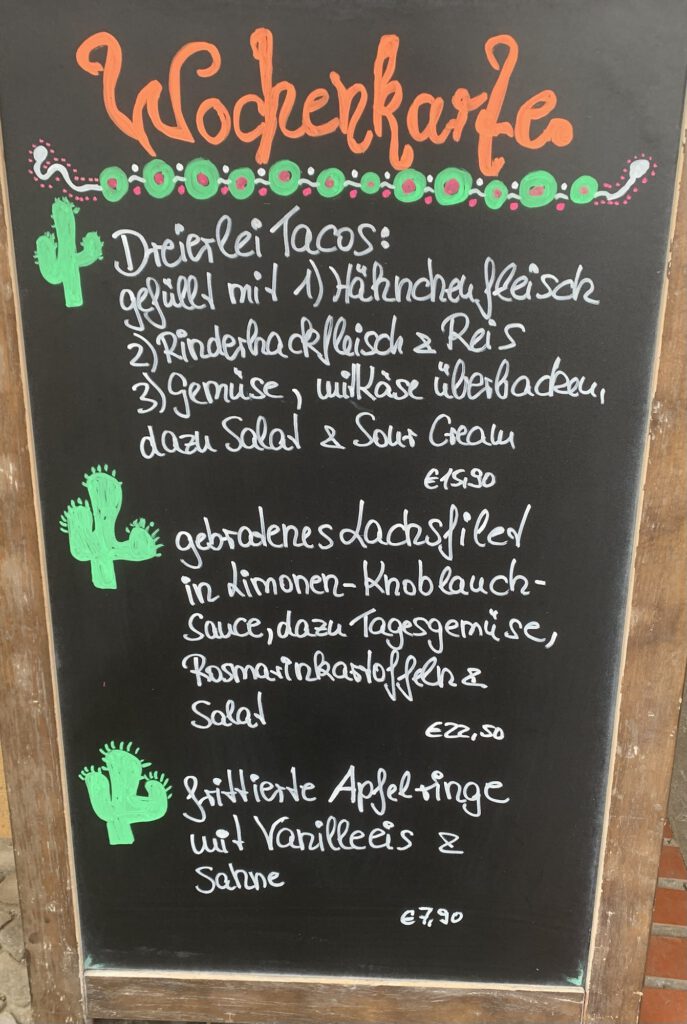 Wochenkarte
Dreierlei Tacos:
gefüllt mit 1) Hähnchenfleisch
2) Rinderhackfleisch & Reis
3) Gemüse, mit Käse überbacken,
dazu Salat & Sour Cream
€15,90
gebratenes Lachsfilet
in Limonen-Knoblauch-
Sauce, dazu Tagesgemüse,
Rosmarinkartoffeln &
Salat
€22,50
frittierte Apfelringe
mit Vanilleeis &
Sahne
€7,90